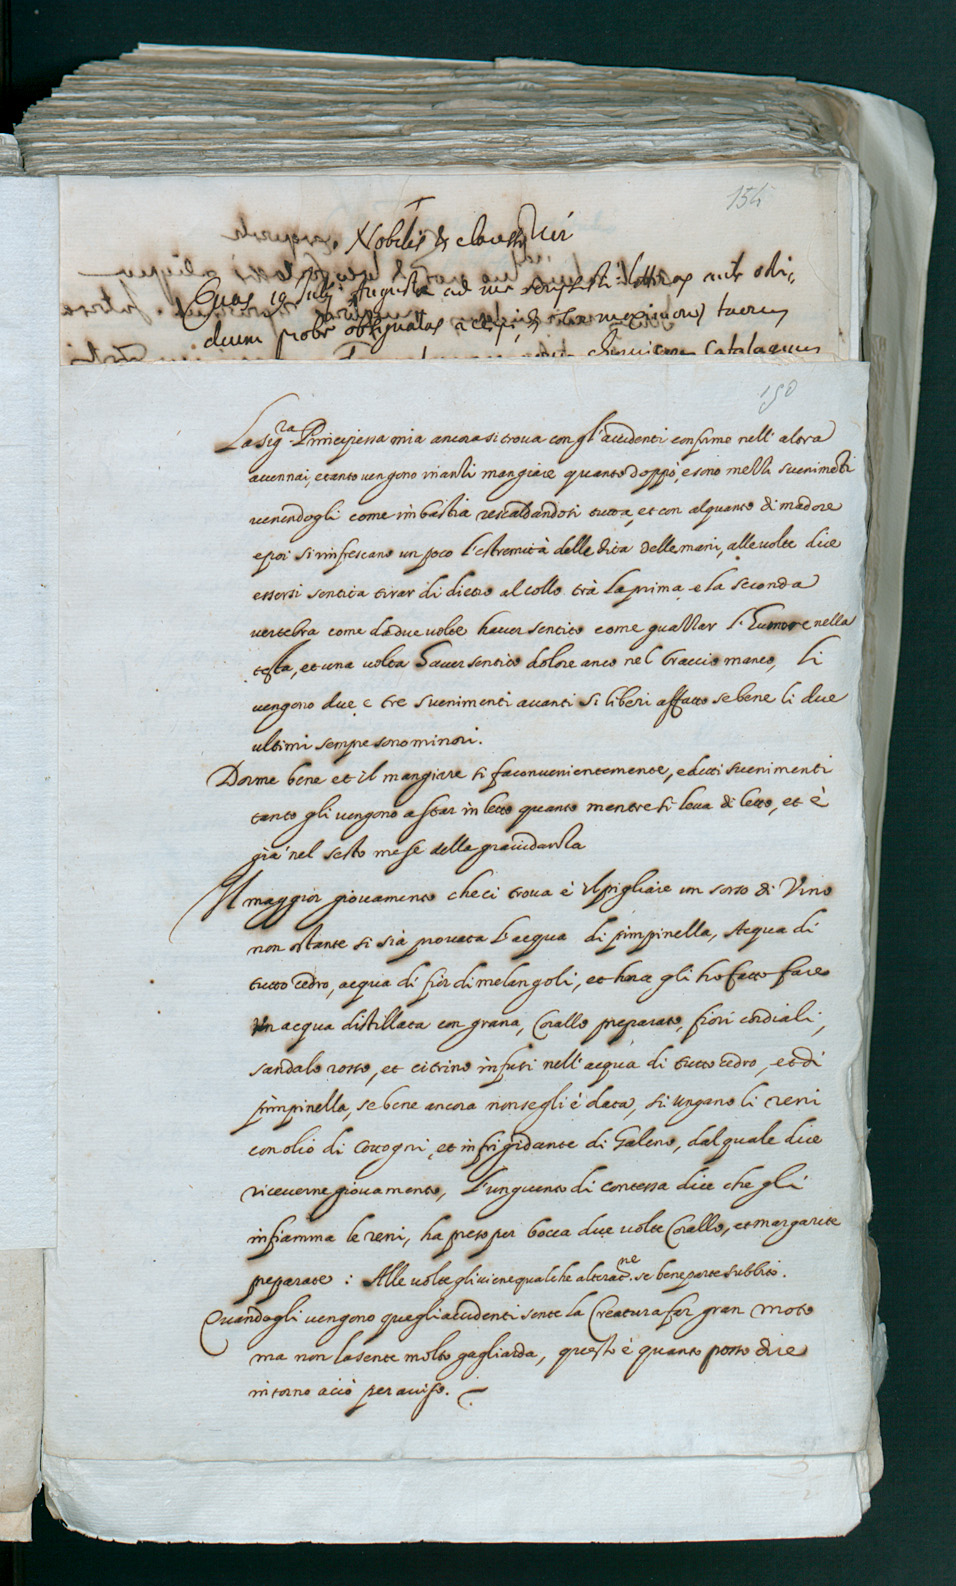 154
Nobilis & clariss. Vir
Quas 19 Julij Augusta ad me scripsisti litteras
probe obsignatas accepi, &
Catalogum
150
La Sig.ra Principessa mia ancora si trova con gl'accidenti conforme nell'altra
accennai, et tanto vengono inanti mangiare quanto doppò, e sono mezzi svenimenti
venendogli come imbastia rescaldandosi tutta, et con alquanto di madore
e poi si rinfrescano un poco l'estremità delle dita delle mani, alle volte dice
essersi sentita tirar di dietro al collo trà la prima e la seconda
vertebra come da due volte haver sentito come guazzar l'humore nella
testa, et una volta haver sentito dolore anco nel braccio manco, li
vengono due e tre svenimenti avanti si liberi affatto se bene li due
ultimi sempre sono minori.
Dorme bene et il mangiare si fa convenientemente, e detti svenimenti
tanto gli vengono a star in letto quanto mentre si leva di letto, et è
già nel sesto mese della gravidanza
Il maggior giovamento che ci trova è il pigliare un sorso di Vino
non ostante si sia provata l'acqua di pimpinella, Acqua di
tutto cedro, acqua di fior di melangoli, et hora gli ho fatto fare
un acqua distillata con grana, Corallo preparato, fiori cordiali,
sandalo rosso, et citrino infusi nell'acqua di tutto cedro, et di
pimpinella, se bene ancora non se gli è data, si ungano li reni
con olio di Cotogni, et infrigidante di Galeno, dal quale dice
riceverne giovamento, l'unguento di contessa dice che gli
infiamma le reni, ha preso per bocca due volte Corallo, et margarite
preparate : Alle volte gli viene qualche alterac.ne se bene parte subbito.
Quando gli vengono quegli accidenti sente la Creatura far gran moto
ma non la sente molto gagliarda, questo è quanto posso dire
intorno acciò per aviso.